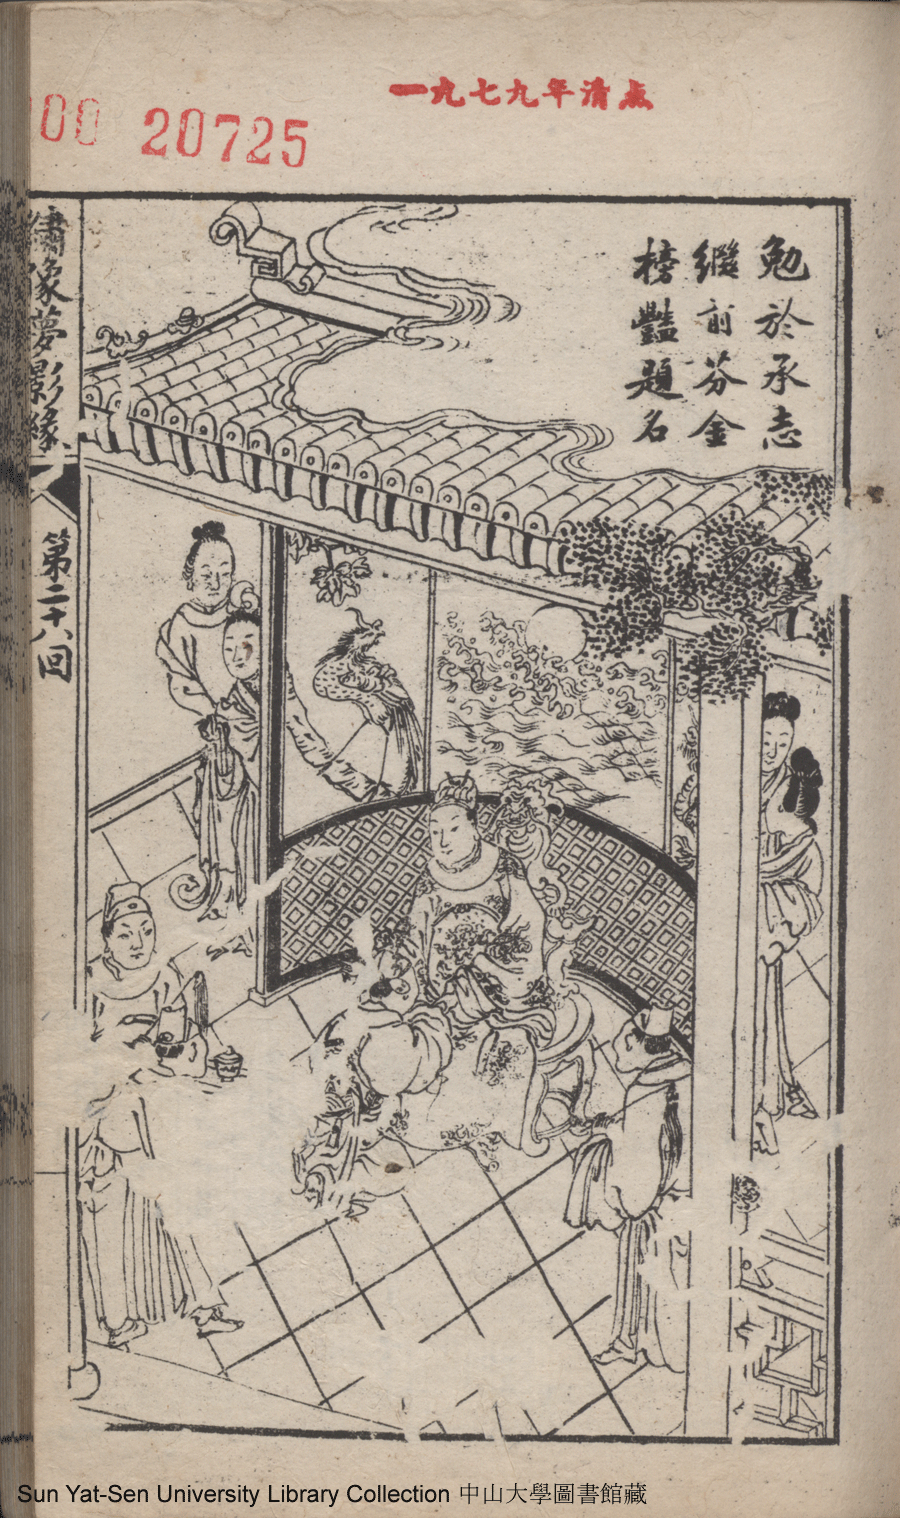 一九七九年清点
00 20725
勉於承志
繼前芬金
榜豔題名
繡像夢影緣
第二十八回
Sun Yat-Sen University Library Collection 中山大學圖書館藏